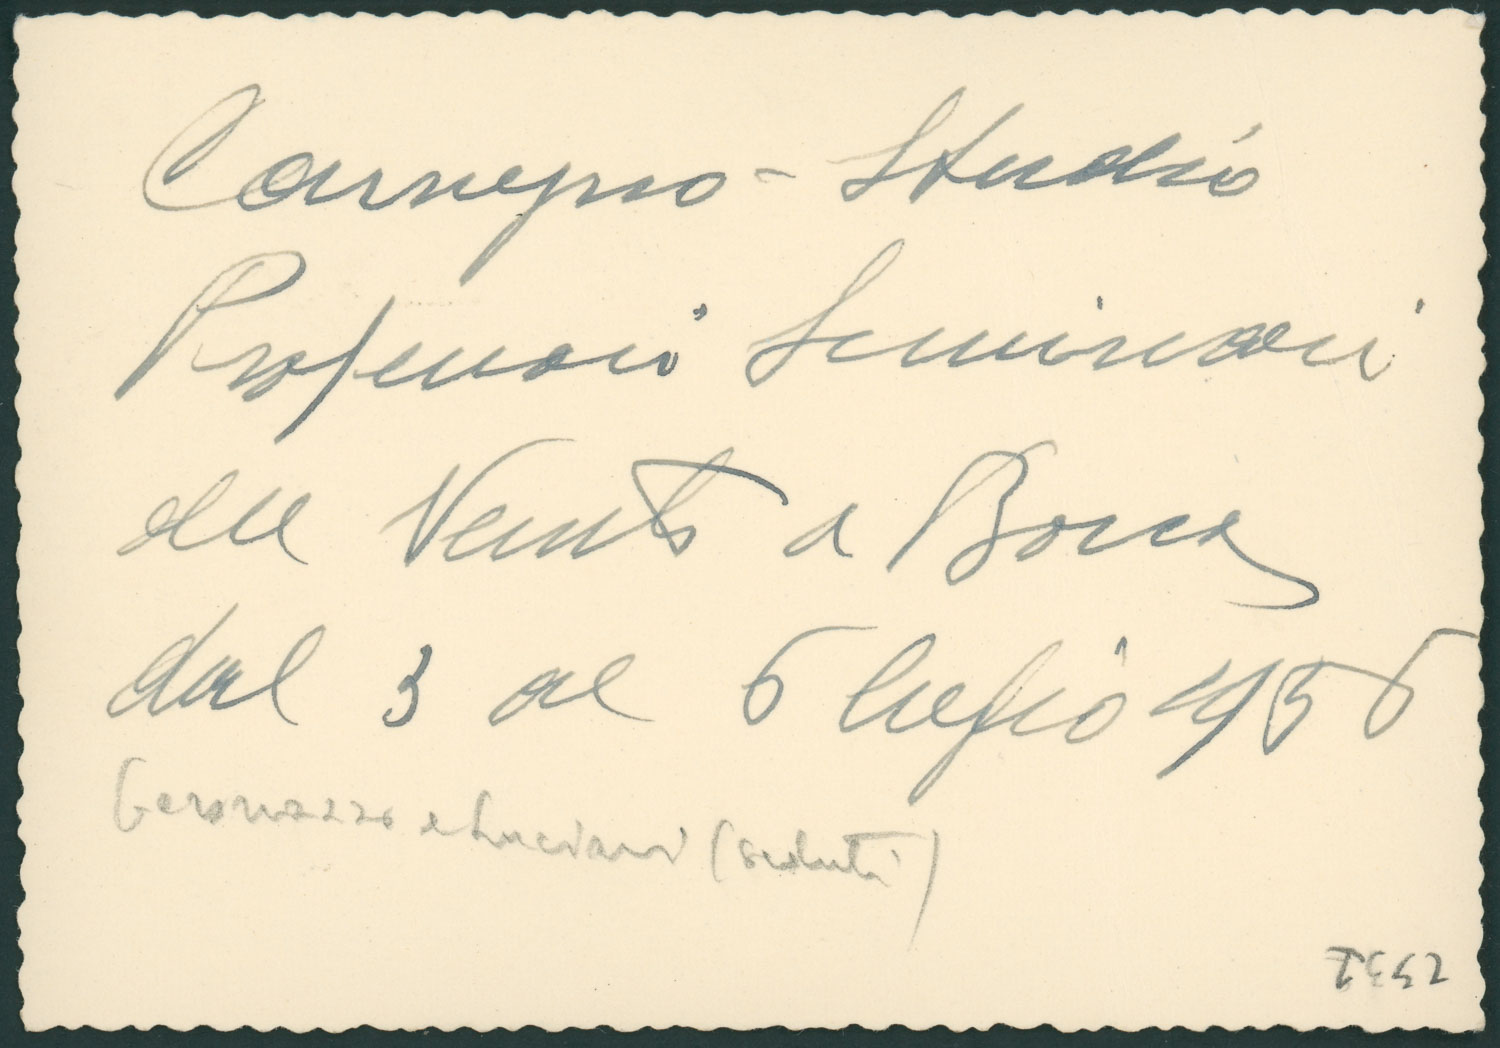 Convegno - Studio
Professori Seminari
del Veneto a Borca
dal 3 al 6 luglio 1956
Geronazzo e Luciani (seduti)